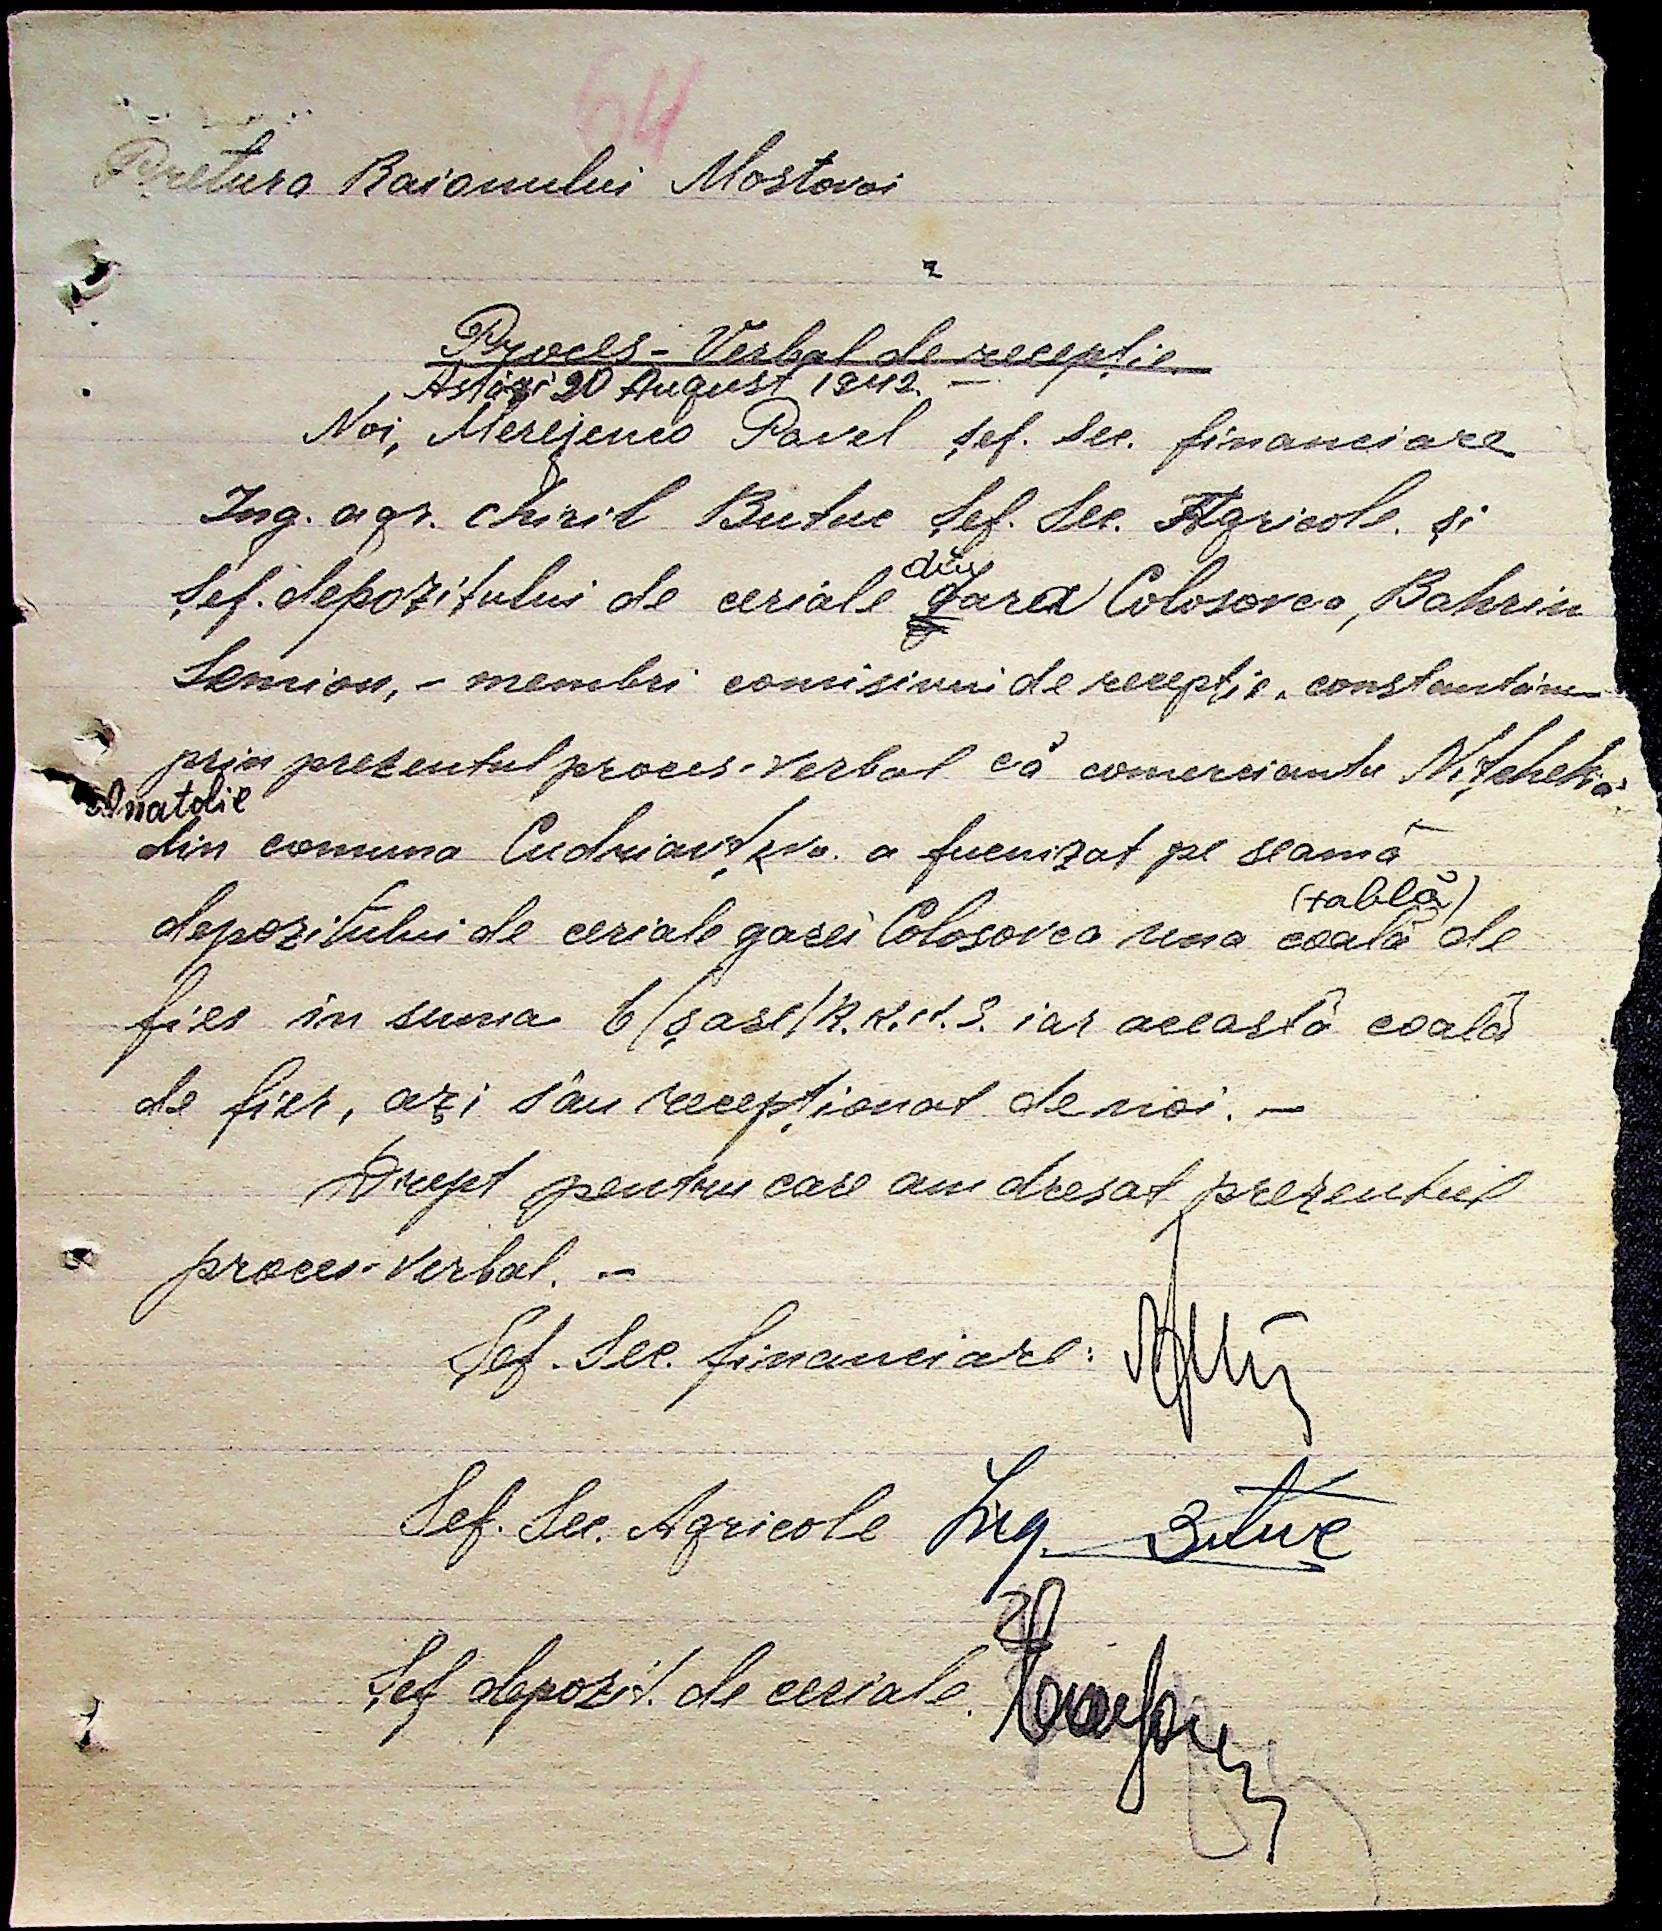 64
Pretura Raionului Mostovoi
Proces-Verbal de recepție
Astăzi 20 August 1942. –
Noi, Merejenco Pavel șef. sec. financiare
Ing. agr. Chiril Butuc Șef. Sec. Agricole. și
din
Șef. depozitului de ceriale gara Colosovca, Bahrin
Semion, – membri comisiuni de recepție, constantăm
prin prezentul proces-verbal că comerciantu
Anatolie
din comuna a furnizat pe seamă
(tablă)
depozitului de ceriale garei Colosovca una coală de
fier în suma 6 (șase) R.K.K.S. iar această coală
de fier, azi s'au recepționat de noi. –
Drept pentru care am dresat prezentul
proces-verbal. –
Șef. Sec. financiare:
Șef. Sec. Agricole Ing. Butuc
Șef depozit. de ceriale.